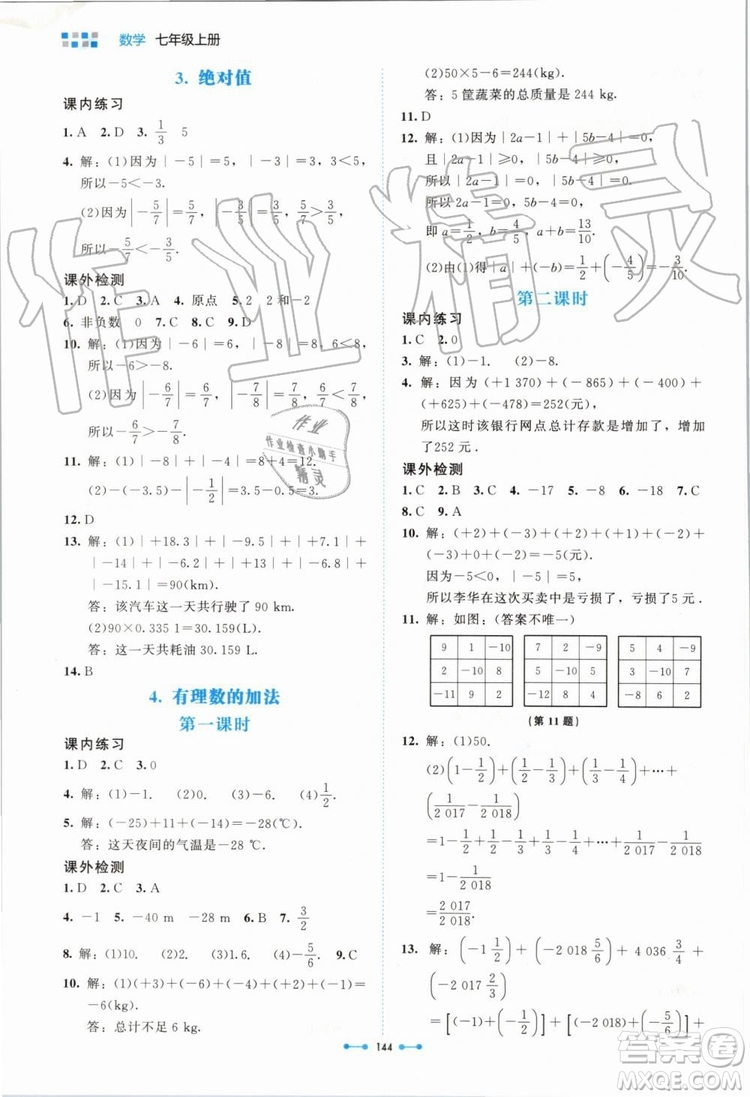 数学 七年级上册
3. 绝对值
课内练习
1. A 2. D 3. 1/3 5
4. 解：(1)因为|－5|＝5，|－3|＝3，3＜5，
所以－5＜－3.
(2)因为|－5/7|＝5/7，|－3/5|＝3/5，5/7＞3/5，
所以－5/7＜－3/5.
课外检测
1. D 2. C 3. A 4. 原点 5. 2 2和－2
6. 非负数 0 7. C 8. C 9. D
10. 解：(1)因为|－6|＝6，|－8|＝8，6＜8，
所以－8＜－6.
(2)因为|－6/7|＝6/7，|－7/8|＝7/8，6/7＜7/8，
所以－6/7＞－7/8.
11. 解：(1)|－8|＋|－4|＝8＋4＝12.
(2)－(－3.5)－|－1/2|＝3.5－1/2＝3.
12. D
13. 解：(1)|＋18.3|＋|－9.5|＋|＋7.1|＋
|－14|＋|－6.2|＋|＋13|＋|－6.8|＋
|－15.1|＝90(km).
答：该汽车这一天共行驶了 90 km.
(2)90×0.335 1＝30.159(L).
答：这一天共耗油 30.159 L.
14. B
4. 有理数的加法
第一课时
课内练习
1. D 2. C 3. 0
4. 解：(1)－10. (2)0. (3)－6. (4)1/2.
5. 解：(－25)＋11＋(－14)＝－28(℃).
答：这天夜间的气温是－28 ℃.
课外检测
1. D 2. C 3. A
4. －1 5. －40 m －28 m 6. A 7. 3/2
8. 解：(1)10. (2)－13. (3)0. (4)－5/6. 9. C
10. 解：(1)(＋3)＋(－6)＋(－4)＋(＋2)＋(－1)＝
－6(kg).
答：总计不足 6 kg.
(2)50×5－6＝244(kg).
答：5 筐蔬菜的总质量是 244 kg.
11. D
12. 解：(1)因为|2a－1|＋|5b－4|＝0，
且|2a－1|≥0，|5b－4|≥0，
所以 2a－1＝0，5b－4＝0，
即 a＝1/2，b＝4/5，a＋b＝13/10.
(2)由(1)得|a|＋(－b)＝1/2＋(－4/5)＝－3/10.
第二课时
课内练习
1. C 2. 0
3. 解：(1)－1. (2)－8.
4. 解：因为(＋1 370)＋(－865)＋(－400)＋
(＋625)＋(－478)＝252(元)，
所以这时该银行网点总计存款是增加了，
增加了252 元.
课外检测
1. C 2. B 3. A 4. －17 5. B 6. －18 7. C
8. C 9. A
10. 解：(＋2)＋(－3)＋(＋2)＋(＋1)＋(－2)＋
(－1)＋(0)＋(－2)＋(－2)＝－5(元).
因为－5＜0，|－5|＝5，
所以李华在这次买卖中是亏损了，亏损了5 元.
11. 解：如图：(答案不唯一)
9 1 －10 －7 5 2 5 4 －9
2 －10 8 －10 8 2 －10 8 2
－11 9 2 9 9
(第 11 题)
12. 解：(1)50.
(2)(1－1/2)＋(1/2－1/3)＋(1/3－1/4)＋…＋
(1/2 017－1/2 018)
＝1－1/2＋1/2－1/3＋1/3－1/4＋…＋1/2 017－
1/2 018
＝1－1/2 018
＝2 017/2 018.
13. 解：(－1 1/2)＋(－2 018 5/6)＋4 036 3/4＋
(－2 017 2/3)
＝[(－1)＋(－1/2)]＋[(－2 018)＋(－5/6)]＋
144
作业精灵
作业
作业检查小帮手
精灵
答案圈
MXQE.COM